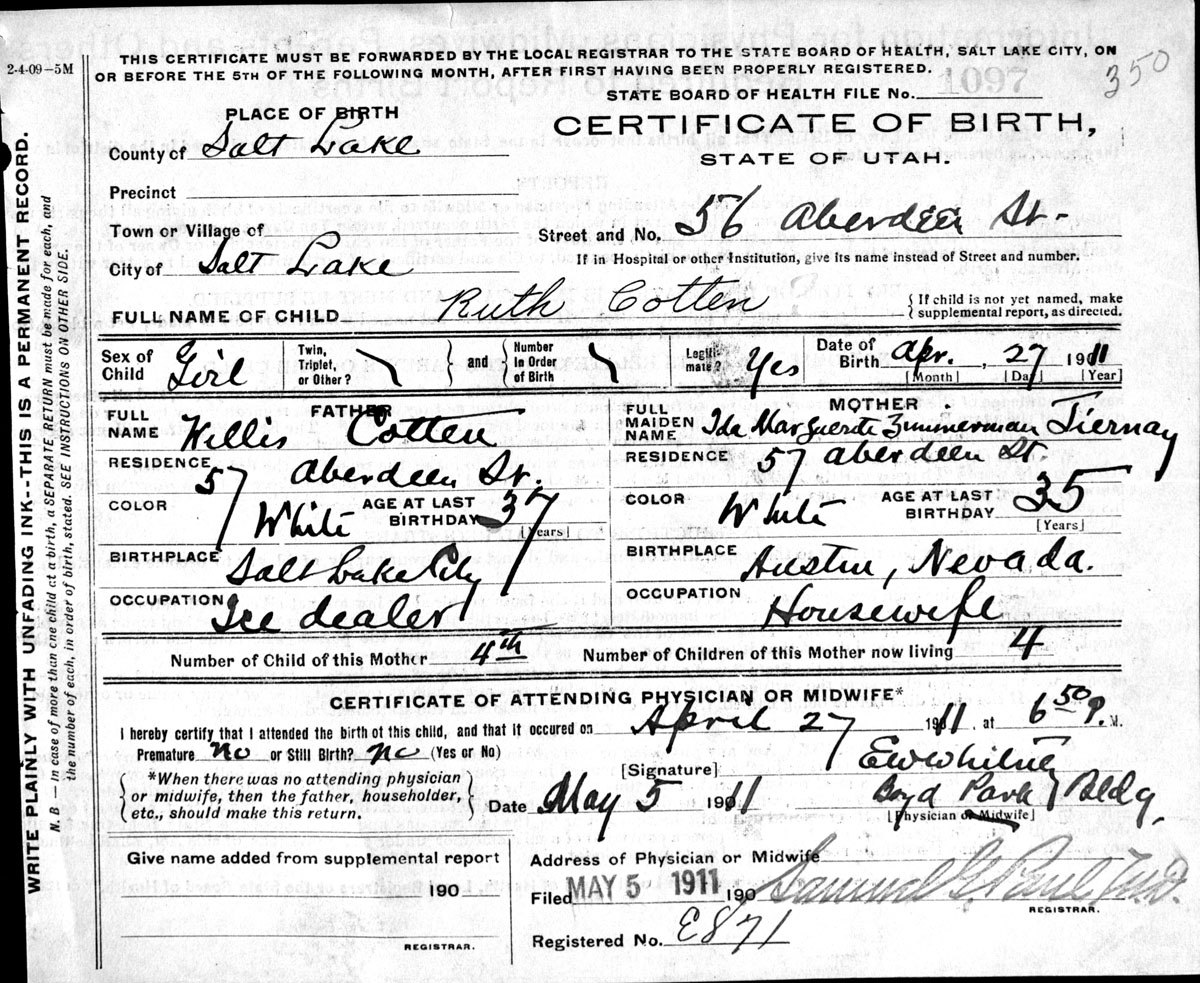 2-4-09-5M
THIS CERTIFICATE MUST BE FORWARDED BY THE LOCAL REGISTRAR TO THE STATE BOARD OF HEALTH, SALT LAKE CITY, ON
OR BEFORE THE 5TH OF THE FOLLOWING MONTH, AFTER FIRST HAVING BEEN PROPERLY REGISTERED.
350
STATE BOARD OF HEALTH FILE No. 1097
CERTIFICATE OF BIRTH,
STATE OF UTAH.
PLACE OF BIRTH
County of Salt Lake
Precinct
Town or Village of
City of Salt Lake
Street and No. 56 Aberdeen St.
If in Hospital or other Institution, give its name instead of Street and number.
FULL NAME OF CHILD Ruth Cotten
{ If child is not yet named, make
supplemental report, as directed.
Sex of Child Girl
Twin, Triplet, or Other?
and
Number in Order of Birth
Legitimate? Yes
Date of Birth Apr. , 27 1911
[Month] [Day] [Year]
FATHER
FULL NAME Willis Cotten
RESIDENCE 57 Aberdeen St.
COLOR White
AGE AT LAST BIRTHDAY 37
[Years]
BIRTHPLACE Salt Lake City
OCCUPATION Ice dealer
MOTHER
FULL MAIDEN NAME Ida Marguerite Zimmerman Tiernay
RESIDENCE 57 Aberdeen St.
COLOR White
AGE AT LAST BIRTHDAY 35
[Years]
BIRTHPLACE Austin, Nevada.
OCCUPATION Housewife
Number of Child of this Mother 4th
Number of Children of this Mother now living 4
CERTIFICATE OF ATTENDING PHYSICIAN OR MIDWIFE*
I hereby certify that I attended the birth of this child, and that it occured on April 27 1911 at 6 50 P. M.
Premature no or Still Birth? no (Yes or No)
*When there was no attending physician
or midwife, then the father, householder,
etc., should make this return.
[Signature] E W Whitney
Boyd Park Bldg.
Date May 5 1911
[Physician or Midwife]
Give name added from supplemental report
190
REGISTRAR.
Address of Physician or Midwife
Filed MAY 5 1911 190 Samuel G. Paul M.D.
REGISTRAR.
Registered No. E871
WRITE PLAINLY WITH UNFADING INK--THIS IS A PERMANENT RECORD.
N. B.—In case of more than one child at a birth, a SEPARATE RETURN must be made for each, and
the number of each, in order of birth, stated. SEE INSTRUCTIONS ON OTHER SIDE.